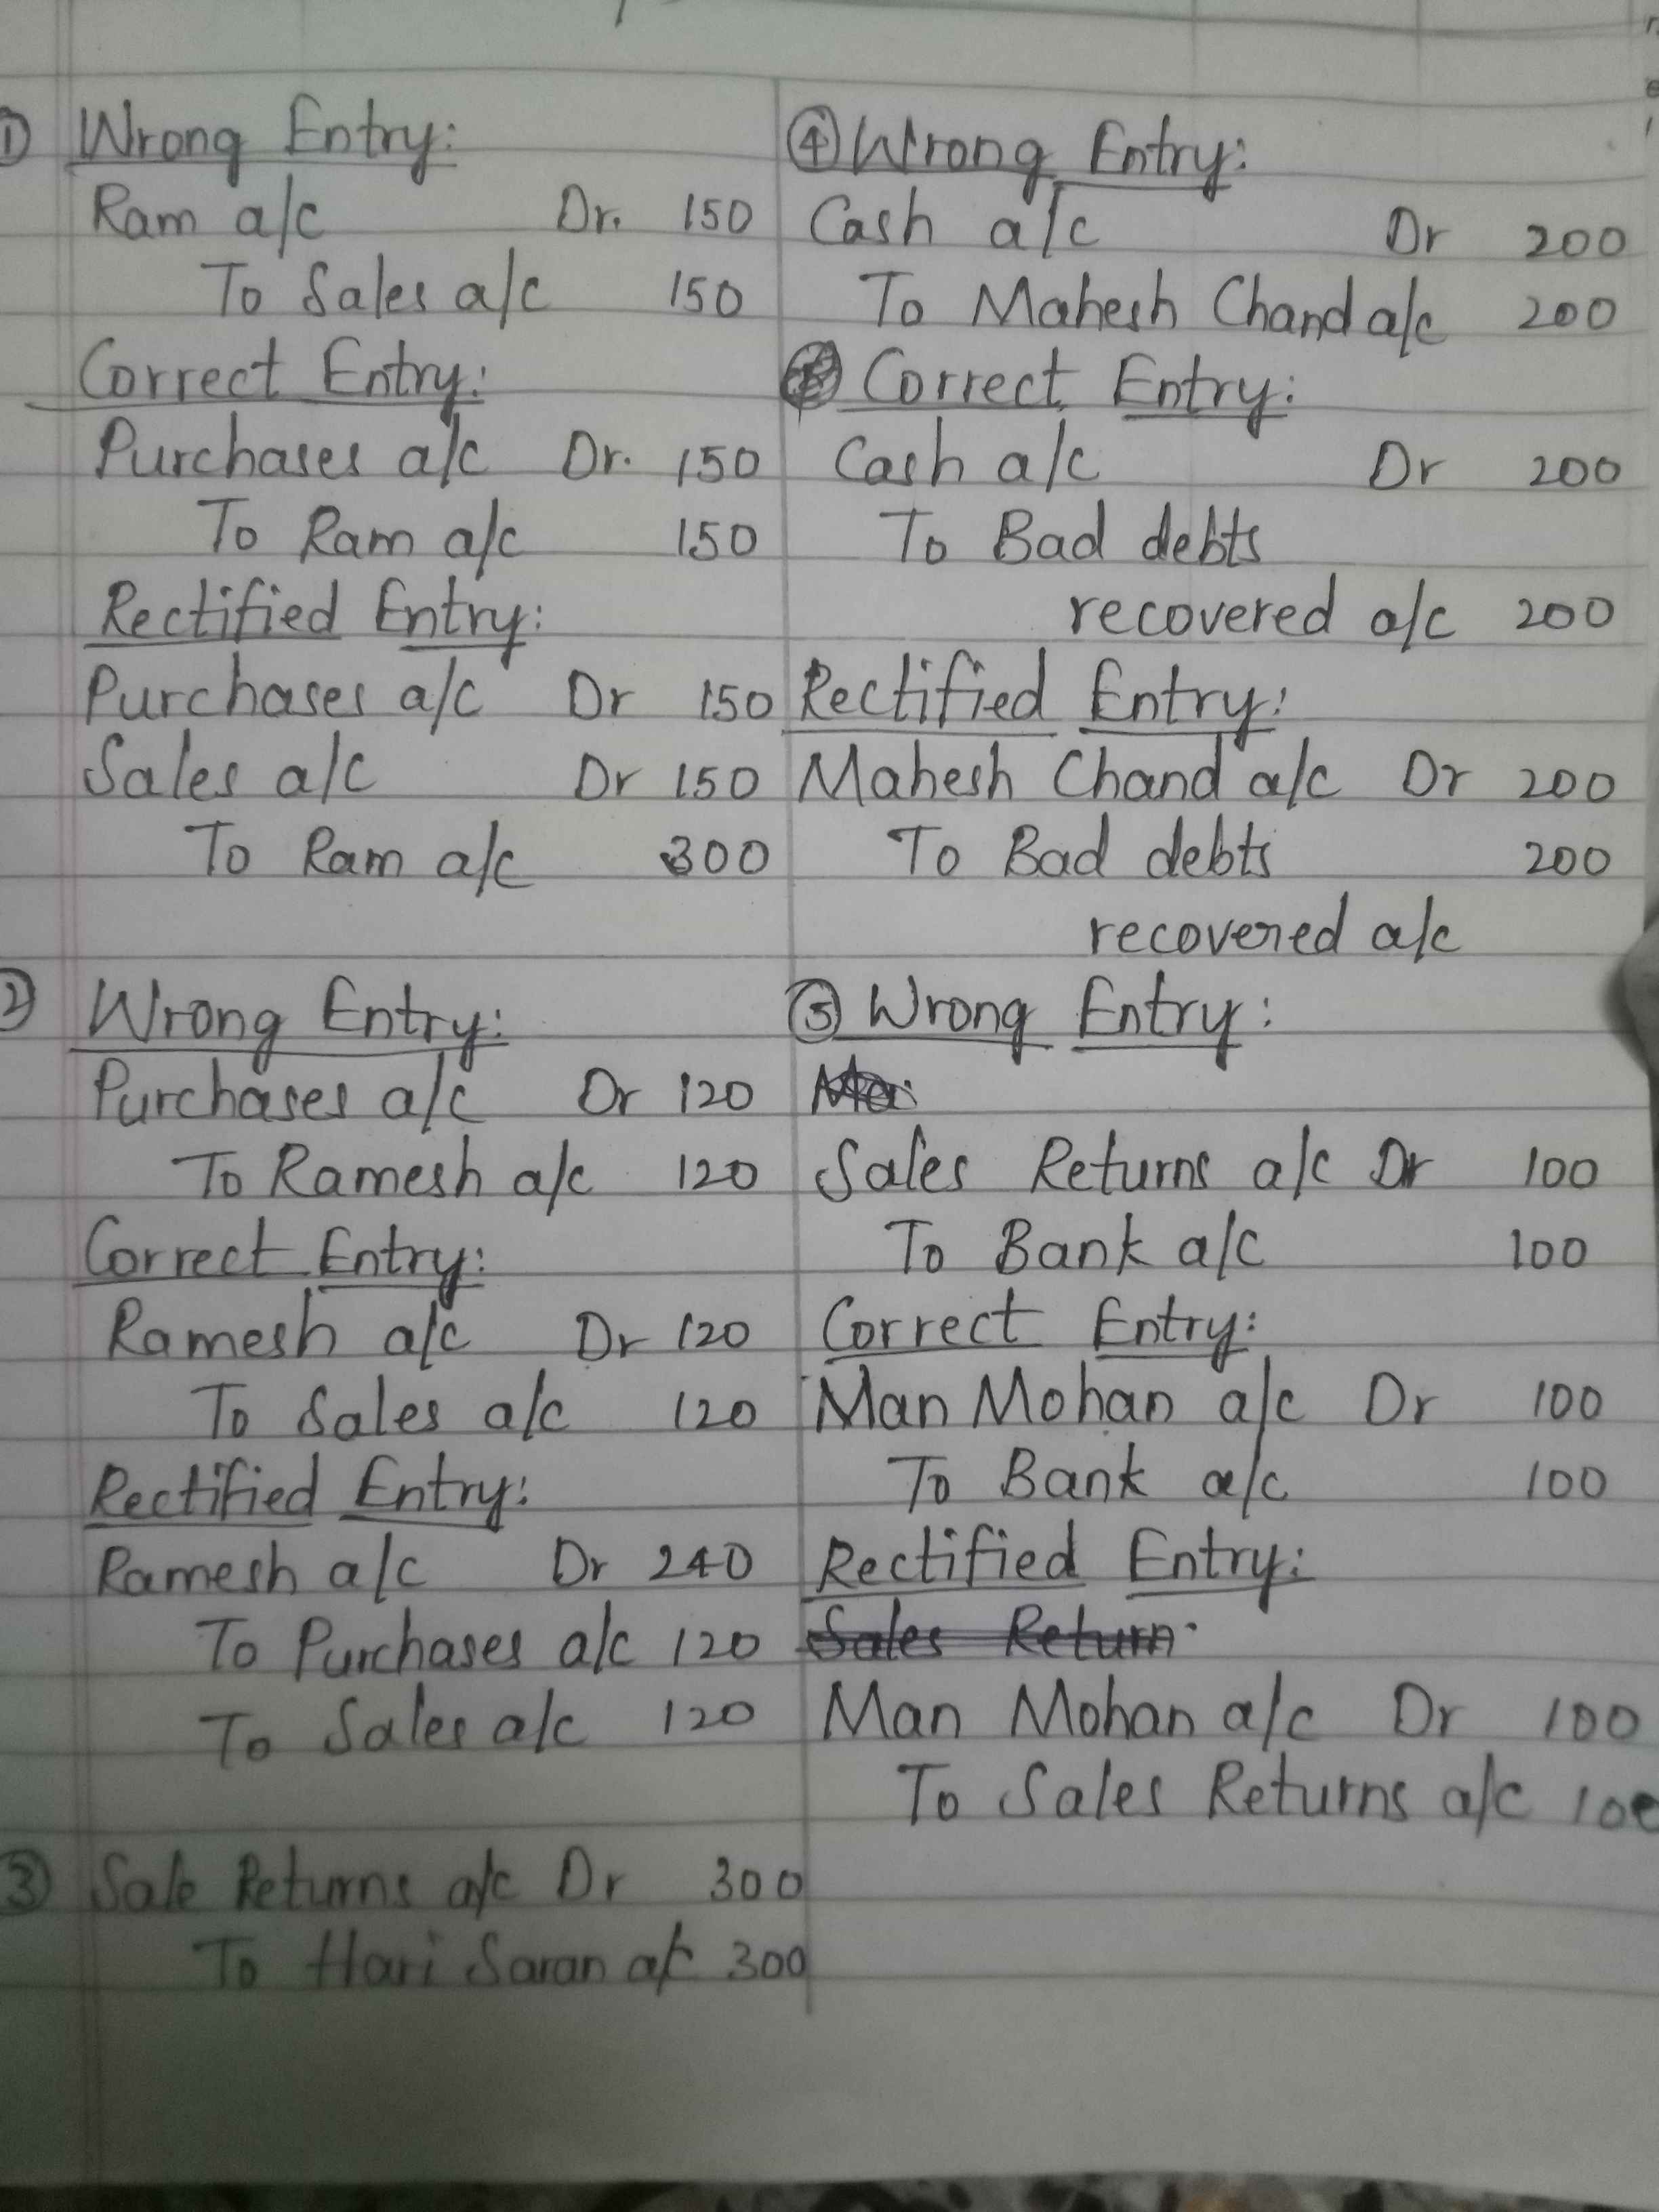 ① Wrong Entry:
Ram a/c Dr. 150
To Sales a/c 150
Correct Entry:
Purchases a/c Dr. 150
To Ram a/c 150
Rectified Entry:
Purchases a/c Dr 150
Sales a/c Dr 150
To Ram a/c 300
② Wrong Entry:
Purchases a/c Dr 120
To Ramesh a/c 120
Correct Entry:
Ramesh a/c Dr 120
To Sales a/c 120
Rectified Entry:
Ramesh a/c Dr 240
To Purchases a/c 120
To Sales a/c 120
③ Sale Returns a/c Dr 300
To Hari Saran a/c 300
④ Wrong Entry:
Cash a/c Dr 200
To Mahesh Chand a/c 200
Correct Entry:
Cash a/c Dr 200
To Bad debts
recovered a/c 200
Rectified Entry:
Mahesh Chand a/c Dr 200
To Bad debts 200
recovered a/c
⑤ Wrong Entry:
Sales Returns a/c Dr 100
To Bank a/c 100
Correct Entry:
Man Mohan a/c Dr 100
To Bank a/c 100
Rectified Entry:
Sales Return
Man Mohan a/c Dr 100
To Sales Returns a/c 100